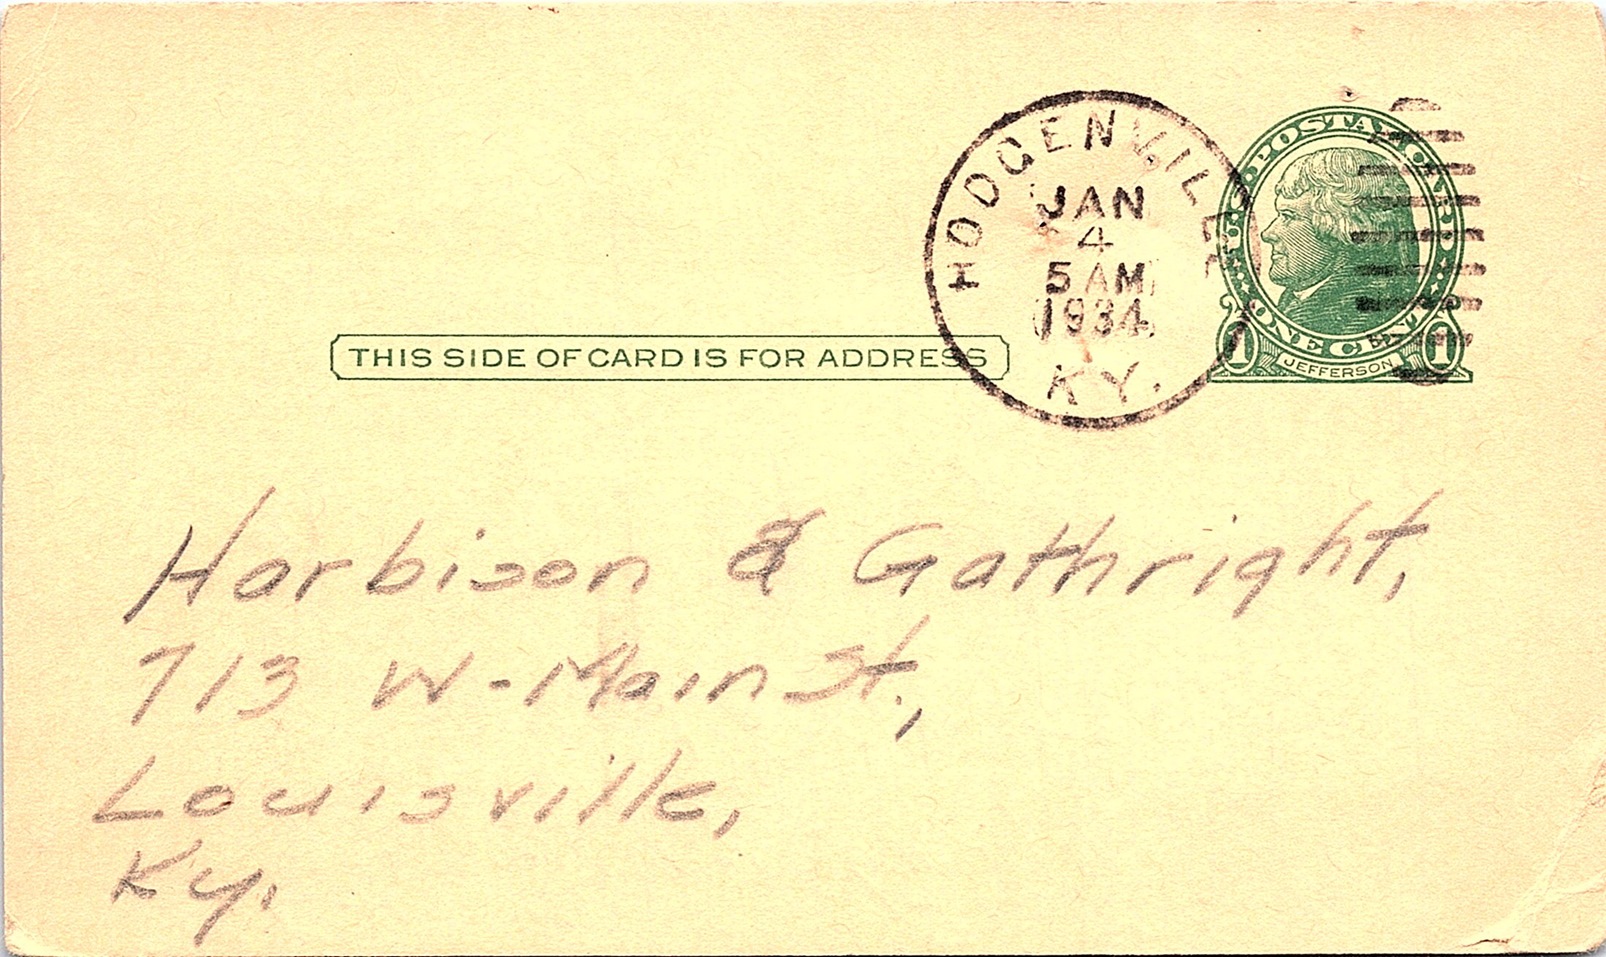 HODGENVILLE
JAN
4
5 AM
1934
KY.
U.S. POSTAL CARD
ONE CENT
1 JEFFERSON 1
THIS SIDE OF CARD IS FOR ADDRESS
Harbison & Gathright,
713 W-Main St.,
Louisville,
Ky.